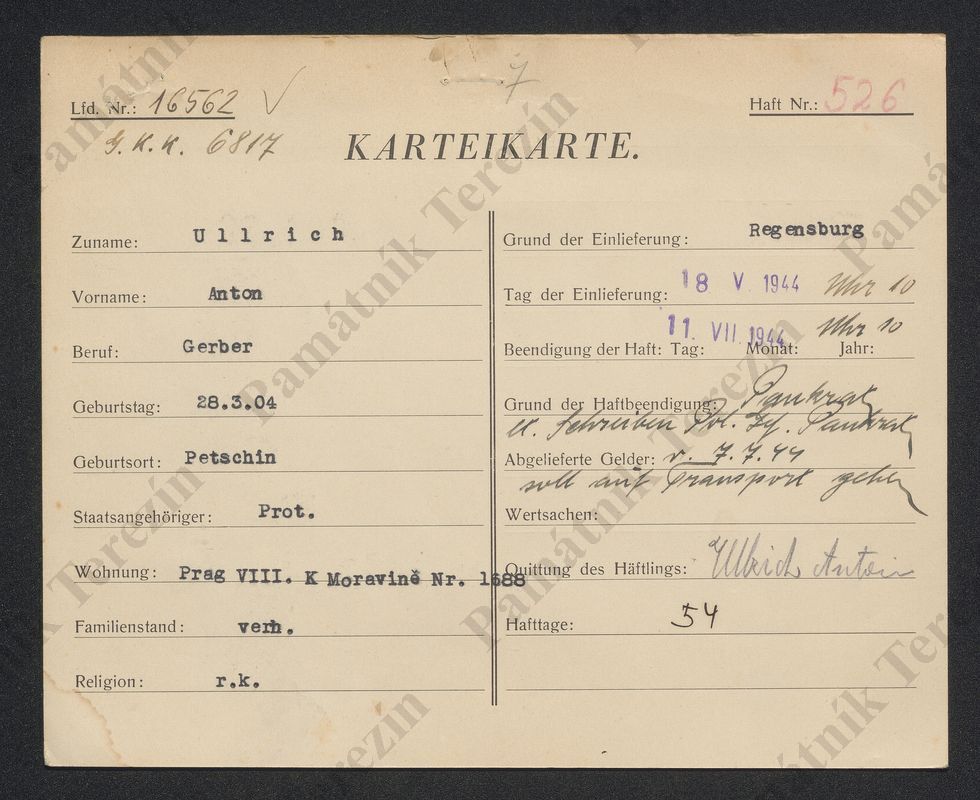 7
Lfd. Nr.: 16562 √
Haft Nr.: 526
G. K. K. 6817
KARTEIKARTE.
Zuname: Ullrich
Vorname: Anton
Beruf: Gerber
Geburtstag: 28.3.04
Geburtsort: Petschin
Staatsangehöriger: Prot.
Wohnung: Prag VIII. K Moravině Nr. 1688
Familienstand: verh.
Religion: r.k.
Grund der Einlieferung: Regensburg
Tag der Einlieferung: 18 V. 1944 Uhr 10
Beendigung der Haft: Tag: Monat: Jahr: 11. VII. 1944 Uhr 10
Grund der Haftbeendigung: Pankratz
lt. Schreiben Pol. Gf. Pankratz
Abgelieferte Gelder: v. 7.7.44
soll mit Transport gehen
Wertsachen:
Quittung des Häftlings: Ullrich Anton
Hafttage: 54
Památník Terezín
Památník Terezín
Památník Terezín
Památník Terezín